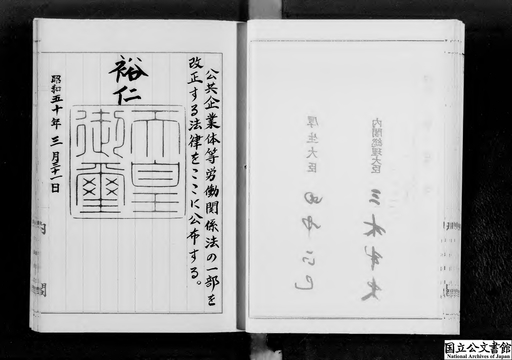 内閣総理大臣 三木武夫
厚生大臣 田中正巳
公共企業体等労働関係法の一部を
改正する法律をここに公布する。
裕仁
天皇
御璽
昭和五十年三月三十一日
国立公文書館
National Archives of Japan